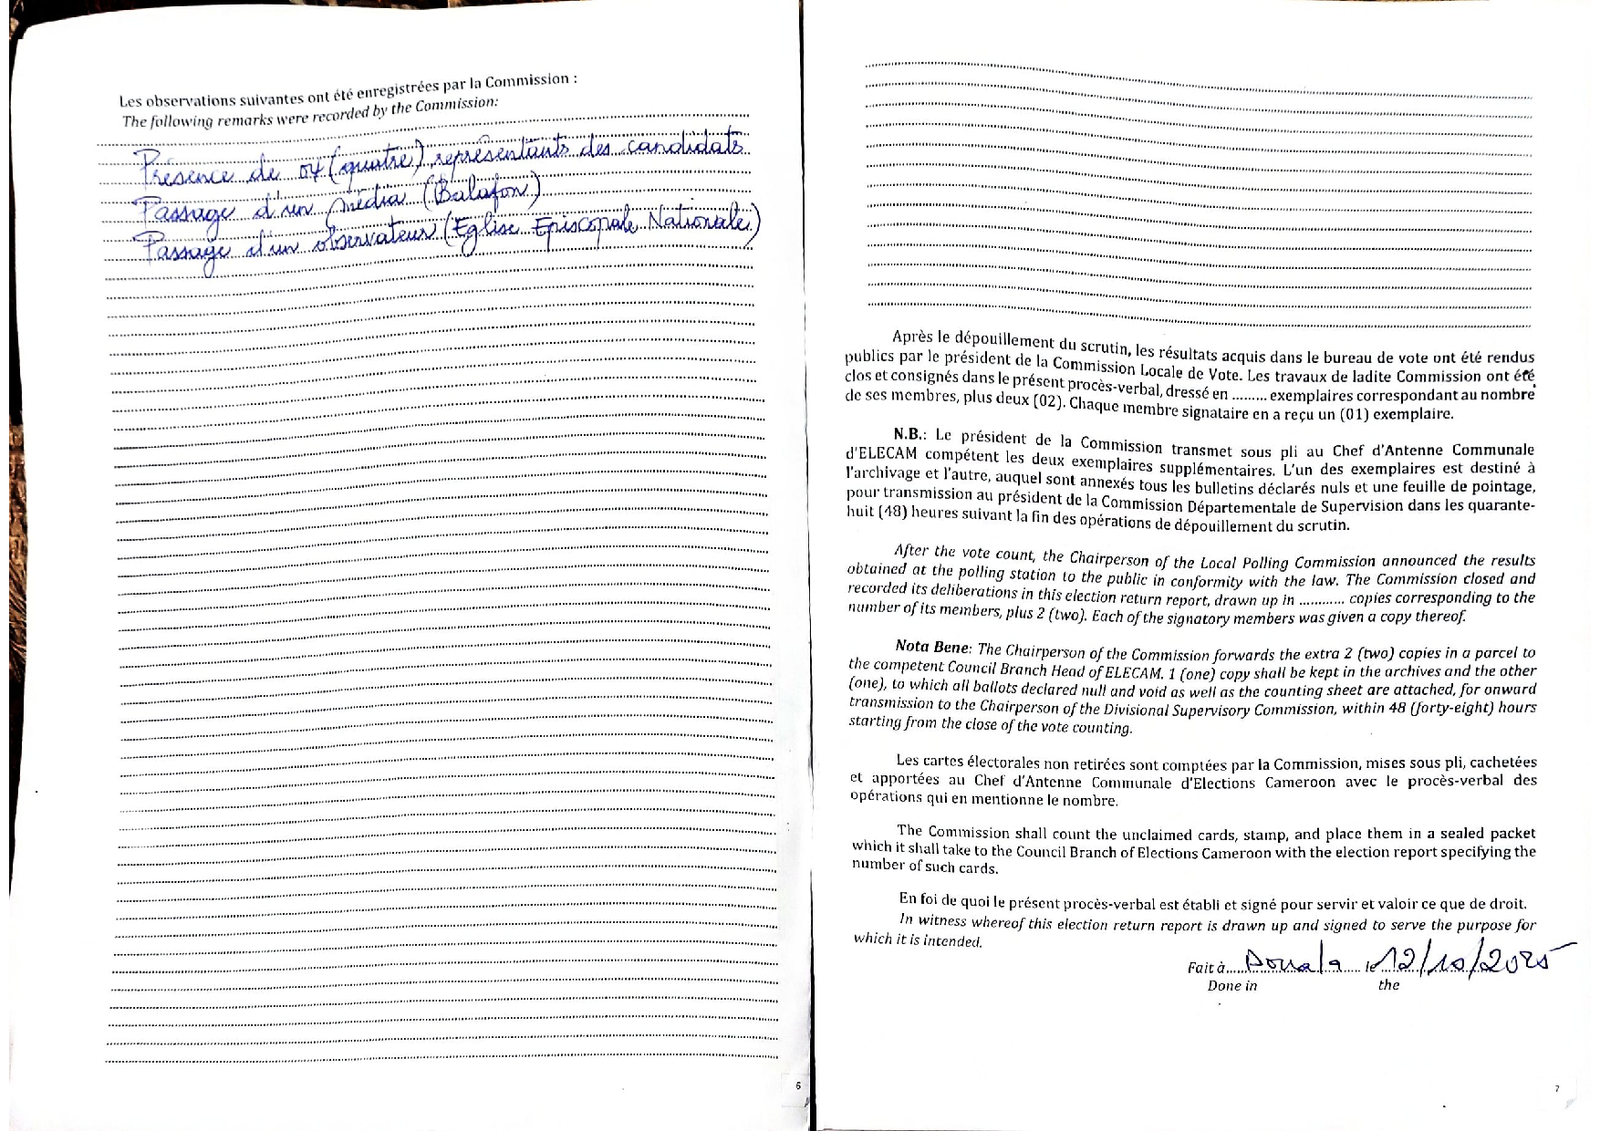 Les observations suivantes ont été enregistrées par la Commission :
The following remarks were recorded by the Commission:
Présence de 04 (quatre) représentants des candidats
Passage d'un média (Balafon)
Passage d'un observateur (Eglise Episcopale Nationale)
6
Après le dépouillement du scrutin, les résultats acquis dans le bureau de vote ont été rendus
publics par le président de la Commission Locale de Vote. Les travaux de ladite Commission ont été
clos et consignés dans le présent procès-verbal, dressé en ......... exemplaires correspondant au nombre
de ses membres, plus deux (02). Chaque membre signataire en a reçu un (01) exemplaire.
N.B.: Le président de la Commission transmet sous pli au Chef d'Antenne Communale
d'ELECAM compétent les deux exemplaires supplémentaires. L'un des exemplaires est destiné à
l'archivage et l'autre, auquel sont annexés tous les bulletins déclarés nuls et une feuille de pointage,
pour transmission au président de la Commission Départementale de Supervision dans les quarante-
huit (48) heures suivant la fin des opérations de dépouillement du scrutin.
After the vote count, the Chairperson of the Local Polling Commission announced the results
obtained at the polling station to the public in conformity with the law. The Commission closed and
recorded its deliberations in this election return report, drawn up in ............ copies corresponding to the
number of its members, plus 2 (two). Each of the signatory members was given a copy thereof.
Nota Bene: The Chairperson of the Commission forwards the extra 2 (two) copies in a parcel to
the competent Council Branch Head of ELECAM. 1 (one) copy shall be kept in the archives and the other
(one), to which all ballots declared null and void as well as the counting sheet are attached, for onward
transmission to the Chairperson of the Divisional Supervisory Commission, within 48 (forty-eight) hours
starting from the close of the vote counting.
Les cartes électorales non retirées sont comptées par la Commission, mises sous pli, cachetées
et apportées au Chef d'Antenne Communale d'Elections Cameroon avec le procès-verbal des
opérations qui en mentionne le nombre.
The Commission shall count the unclaimed cards, stamp, and place them in a sealed packet
which it shall take to the Council Branch of Elections Cameroon with the election report specifying the
number of such cards.
En foi de quoi le présent procès-verbal est établi et signé pour servir et valoir ce que de droit.
In witness whereof this election return report is drawn up and signed to serve the purpose for
which it is intended.
Fait à Douala le 12/10/2025
Done in the
7